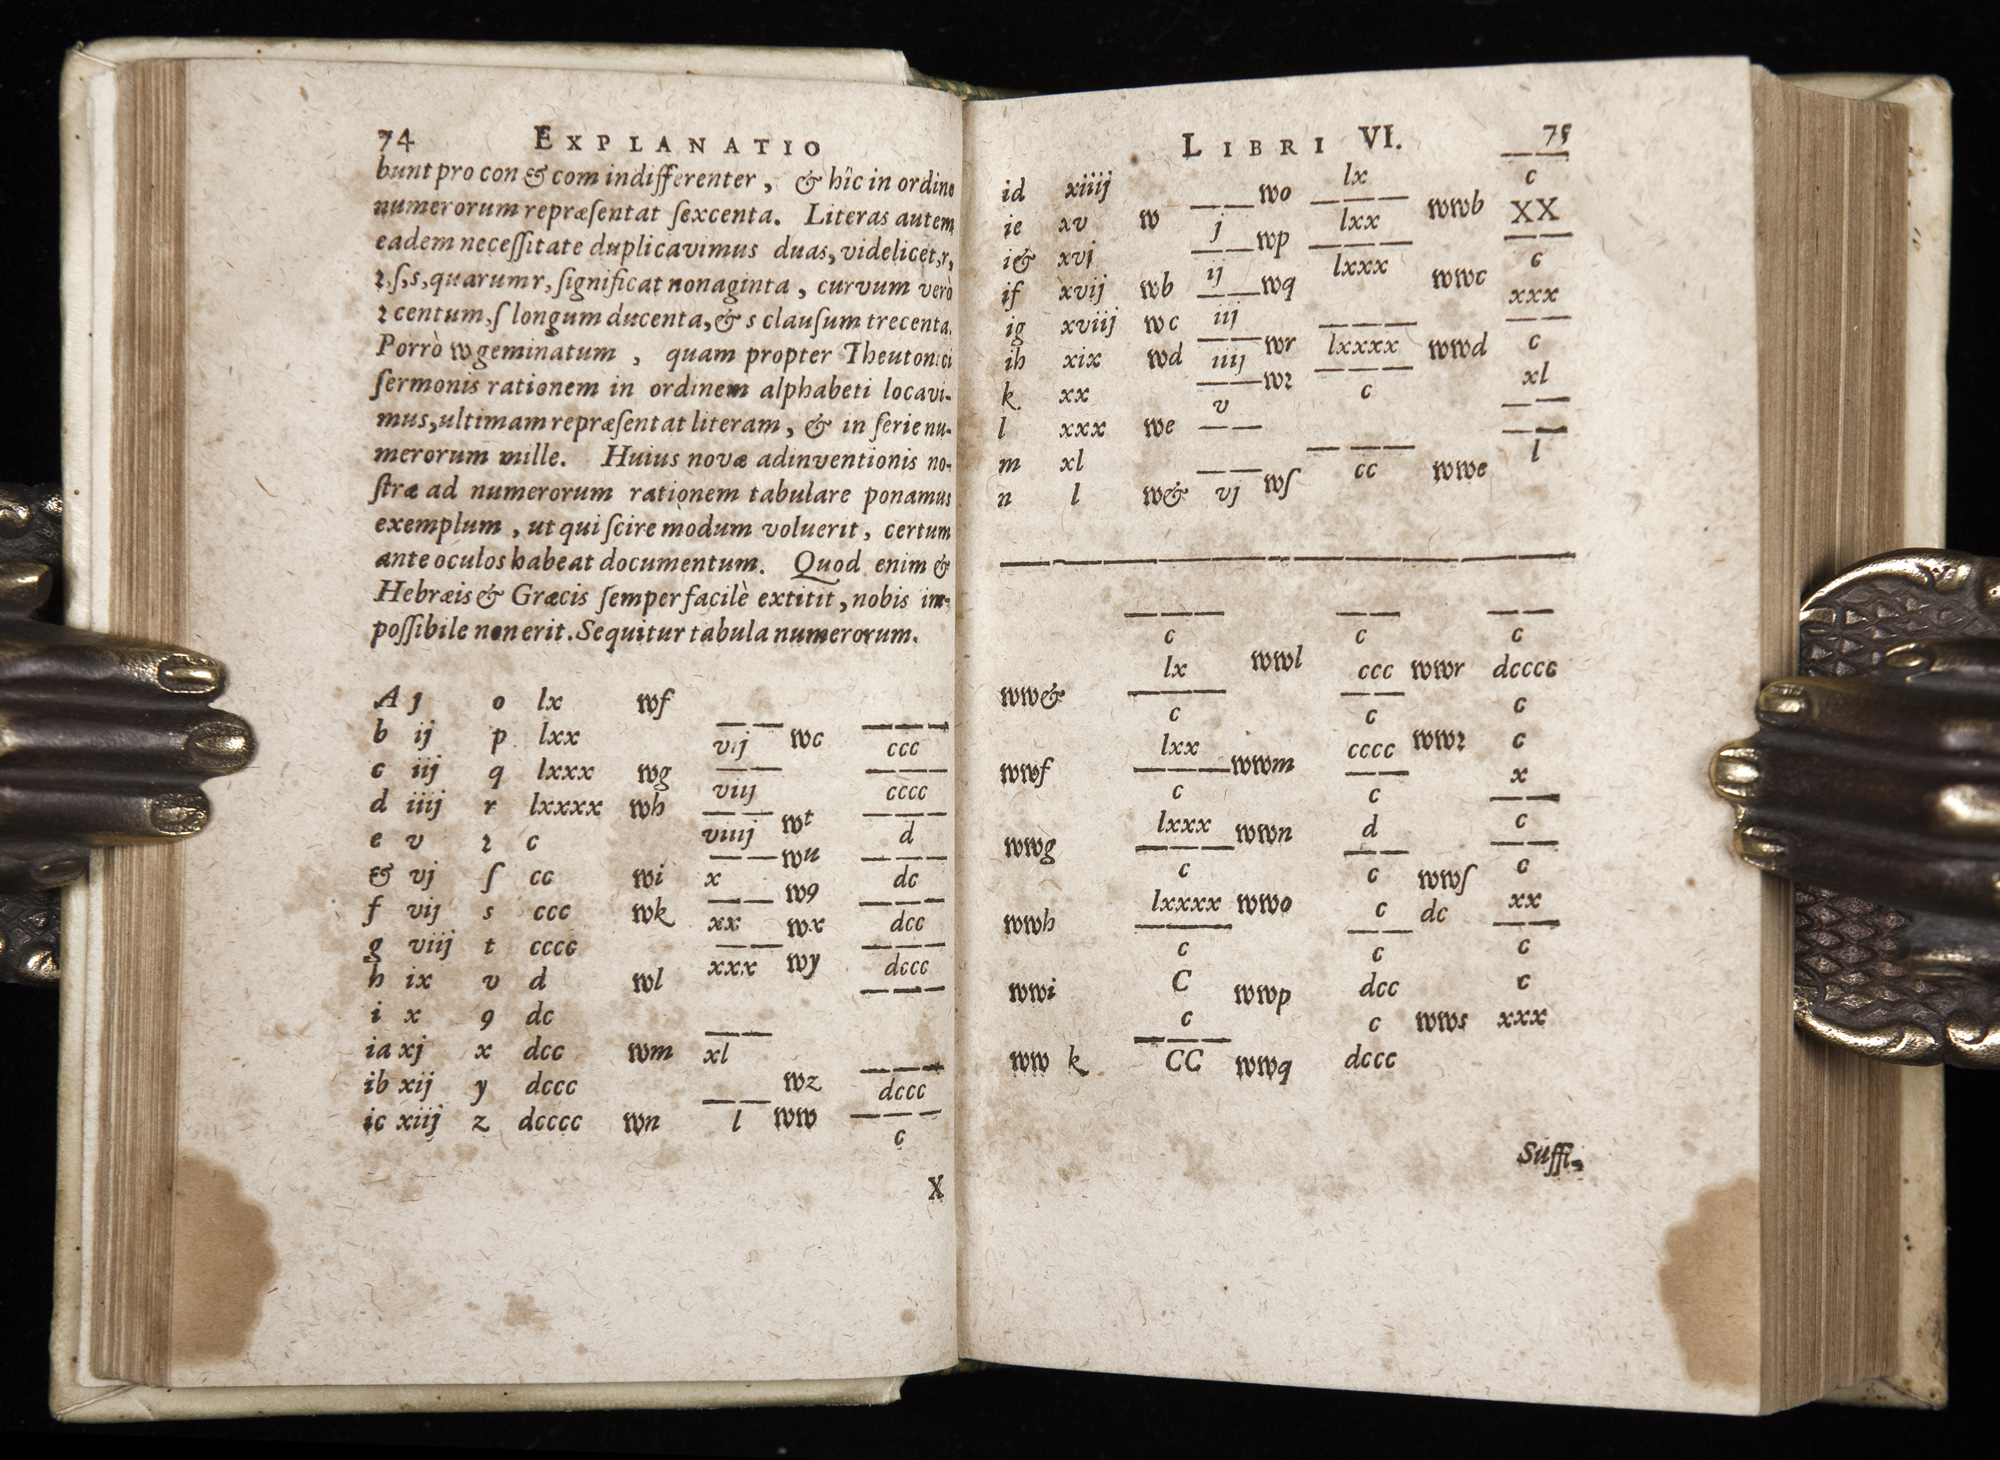 74 EXPLANATIO
bunt pro con & com indifferenter, & hîc in ordine
numerorum repræſentat ſexcenta. Literas autem
eadem neceſſitate duplicavimus duas, videlicet, r,
ꝛ, ſ, s, quarum r, ſignificat nonaginta, curvum verò
ꝛ centum, ſ longum ducenta, & s clauſum trecenta.
Porrò w geminatum, quam propter Theutonici
ſermonis rationem in ordinem alphabeti locavi-
mus, ultimam repræſentat literam, & in ſerie nu-
merorum mille. Huius novæ adinventionis no-
ſtræ ad numerorum rationem tabulare ponamus
exemplum, ut qui ſcire modum voluerit, certum
ante oculos habeat documentum. Quod enim &
Hebræis & Græcis ſemper facilè extitit, nobis im-
poſſibile non erit. Sequitur tabula numerorum.
A j o lx wf
b ij p lxx vij wc ccc
c iij q lxxx wg viij cccc
d iiij r lxxxx wh viiij wt d
e v ꝛ c wu
& vj ſ cc wi x w9 dc
f vij s ccc wk xx wx dcc
g viij t cccc xxx wy dccc
h ix v d wl
i x 9 dc
ia xj x dcc wm xl
ib xij y dccc wz dccc
ic xiij z dcccc wn l ww c
X
LIBRI VI. 75
id xiiij wo lx c
ie xv w j lxx wwb XX
i& xvj wp
if xvij wb ij wq lxxx wwc c
ig xviij wc iij xxx
ih xix wd iiij wr lxxxx wwd c
k xx wꝛ c xl
l xxx we v
m xl cc wwe l
n l w& vj wſ
c c c
ww& lx wwl ccc wwr dcccc
c c c
wwf lxx wwm cccc wwꝛ c
x
c c
wwg lxxx wwn d c
c c wwſ c
wwh lxxxx wwo c dc xx
c c c
wwi C wwp dcc c
c c wws xxx
ww k CC wwq dccc
Suffi-